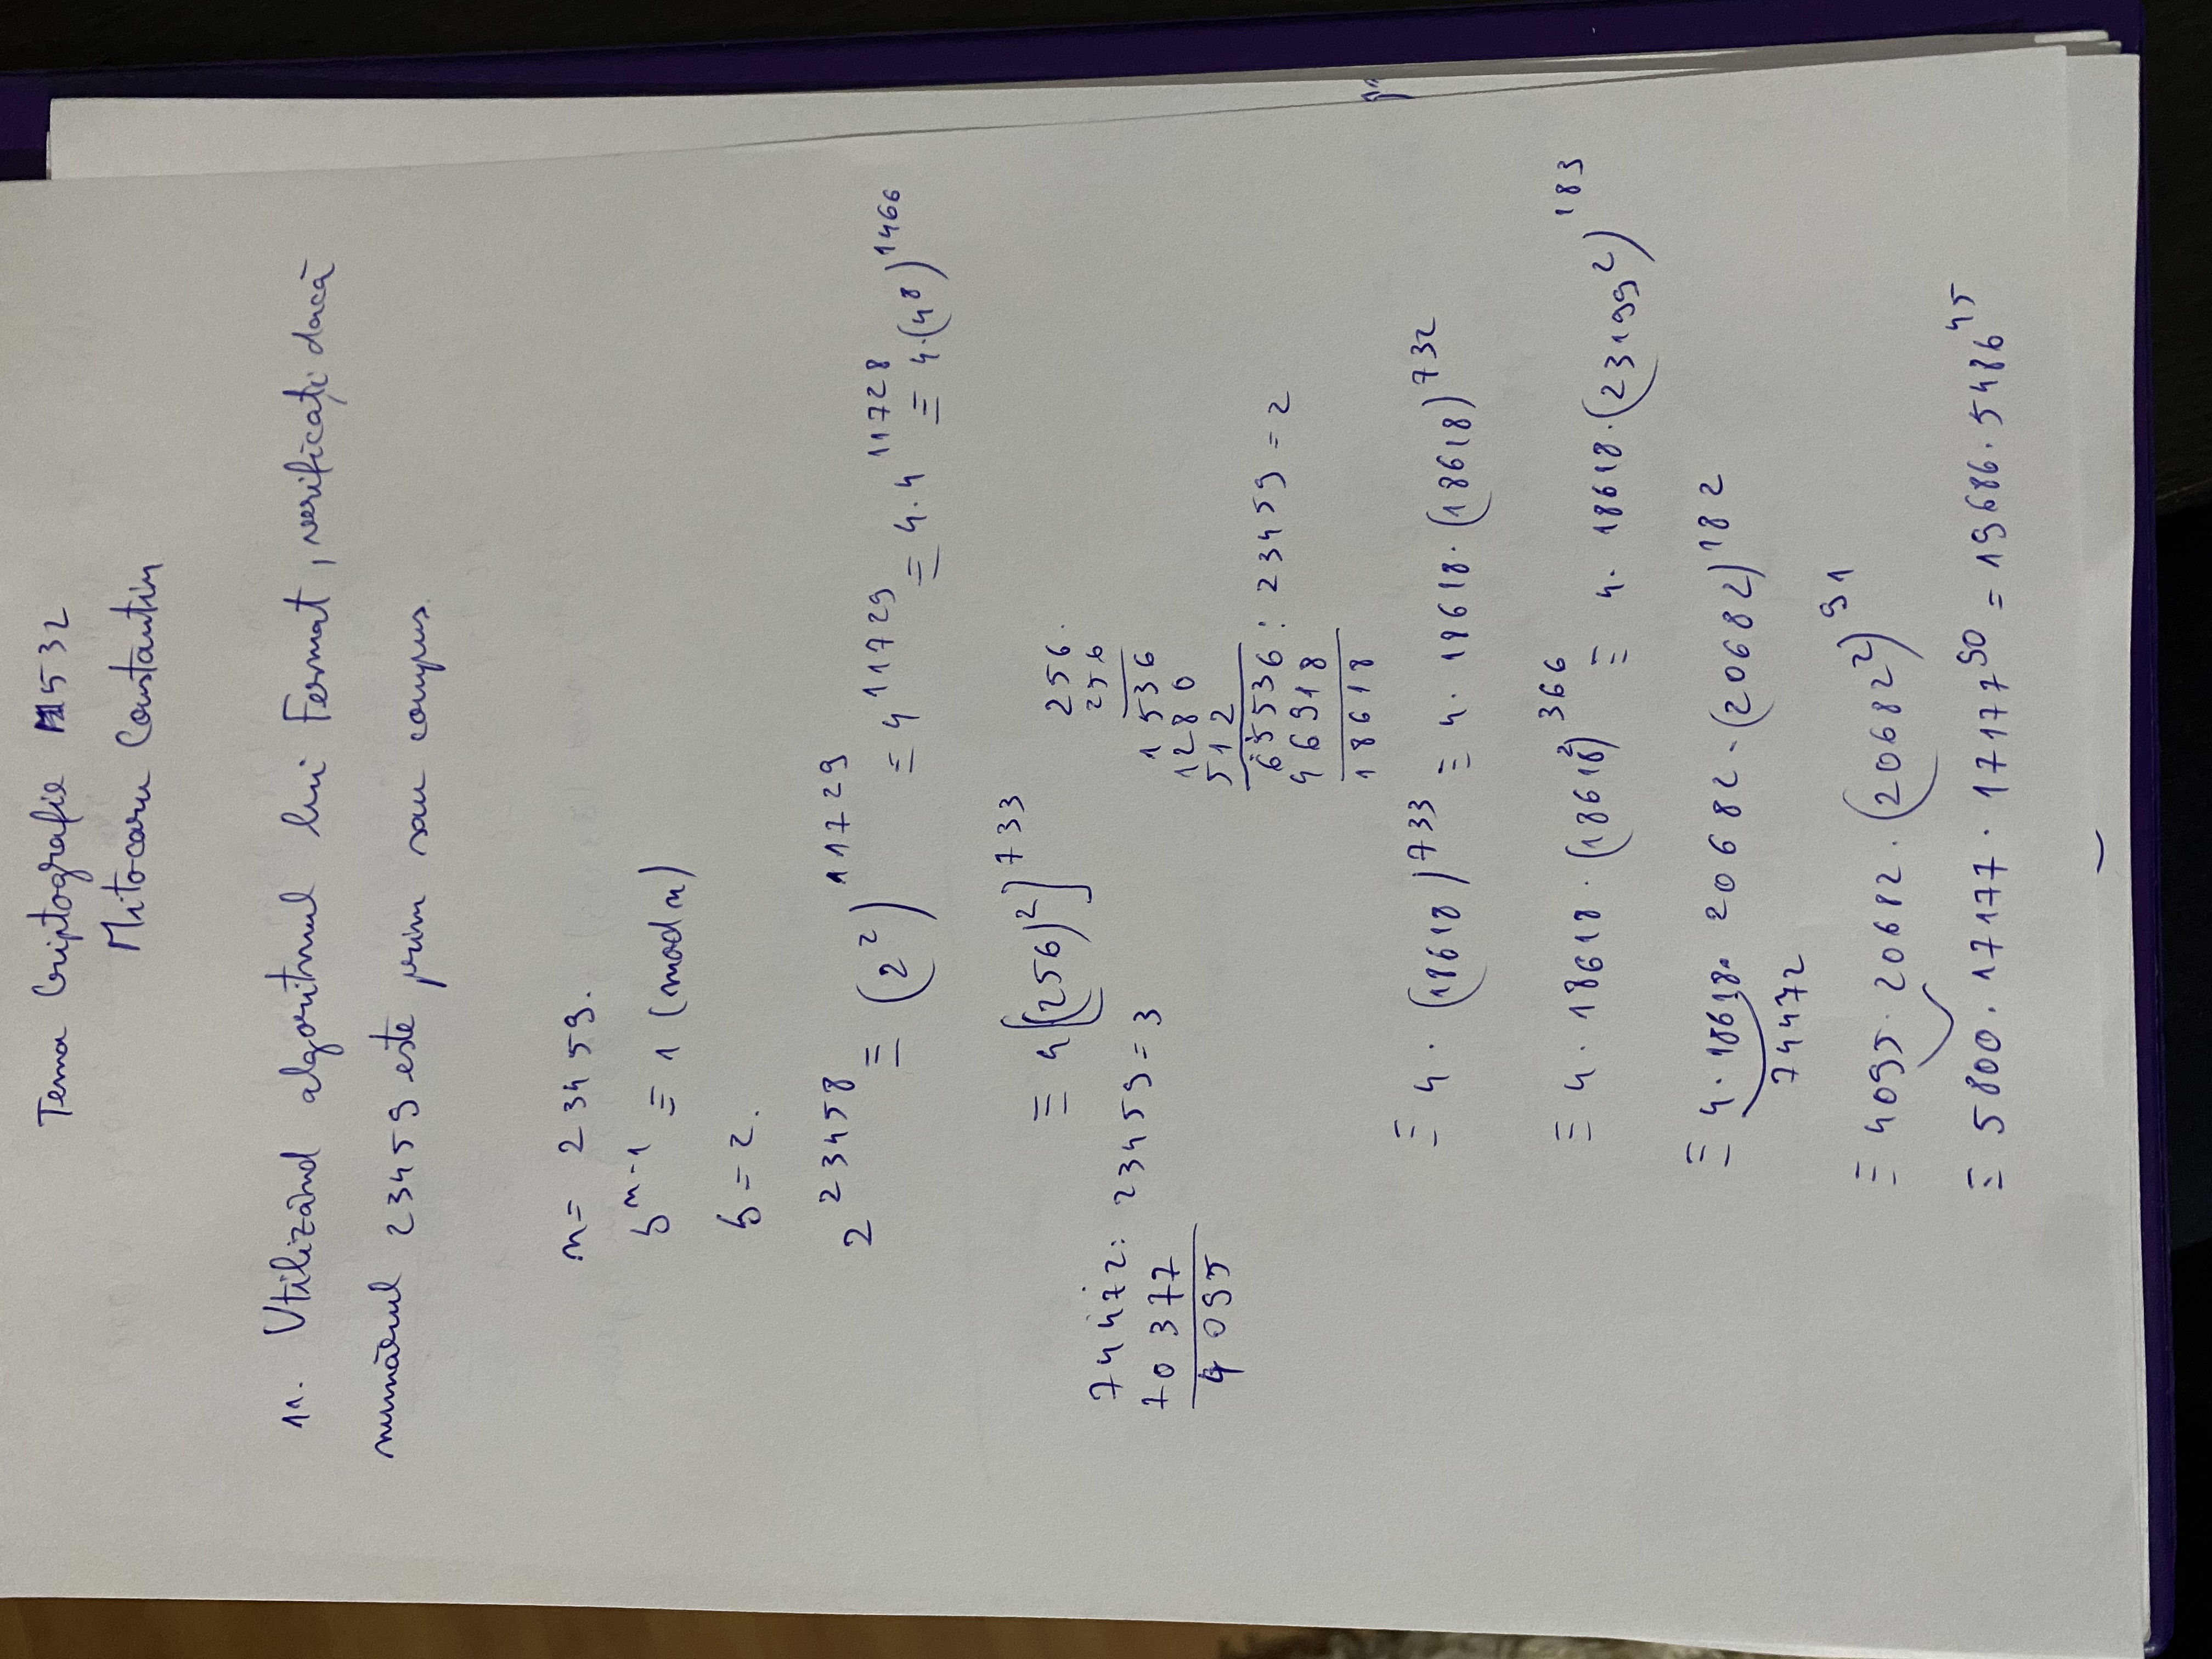 Tema Criptografie M532
Mitocaru Constantin
11. Utilizând algoritmul lui Fermat, verificați dacă
numărul 23459 este prim sau compus.
n = 23459.
b^{n-1} ≡ 1 (mod n)
b = 2.
2^{23458} ≡ (2^2)^{11729} ≡ 4^{11729} ≡ 4·4^{11728} ≡ 4·(4^8)^{1466}
≡ 4[(256)^2]^{733}
256.
256
1 536
1280
512
65536 : 23459 = 2
46918
18618
74472 : 23459 = 3
70377
4095
≡ 4 · (18618)^{733} ≡ 4 · 18618 · (18618)^{732}
≡ 4 · 18618 · (18618^2)^{366} ≡ 4 · 18618 · (23199^2)^{183}
≡ 4 · 18618 · 20682 · (20682)^{182}
74472
≡ 4095 · 20682 · (20682^2)^{91}
≡ 5800 · 17177 · 17177^{90} = 19686 · 5486^{45}